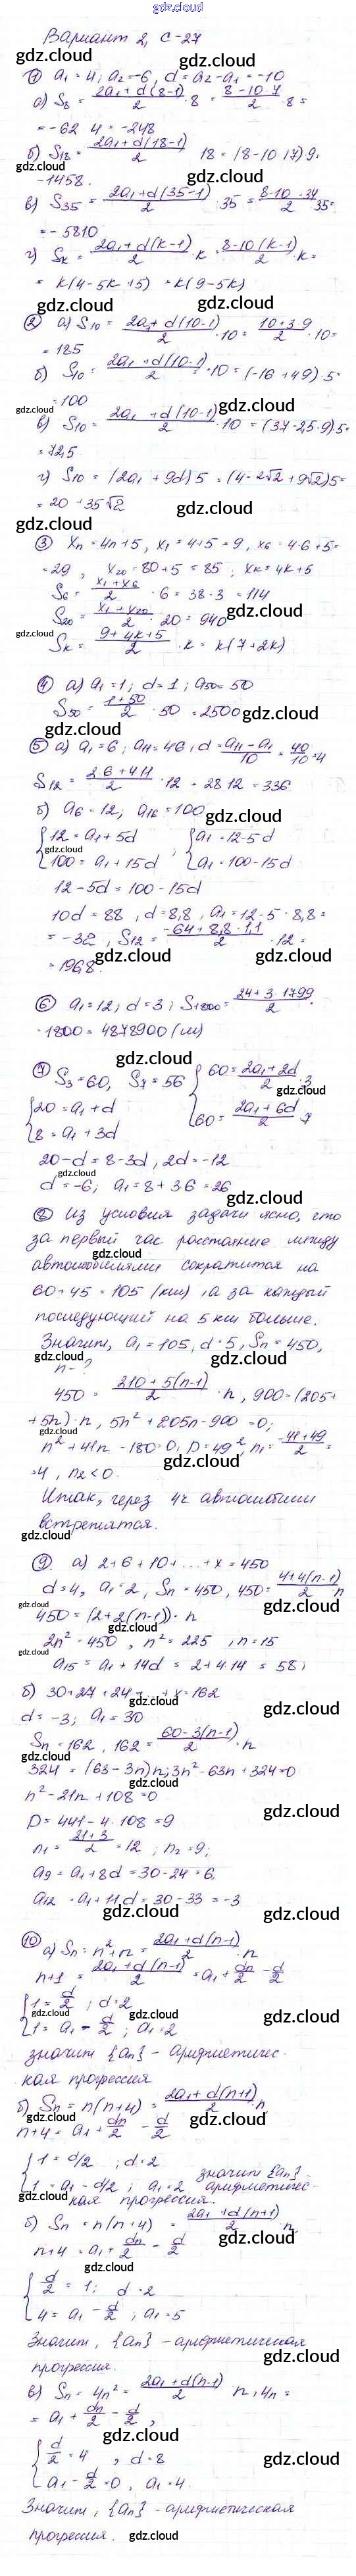 gdz.cloud
Вариант 2, С-27
① a₁ = 4; a₂ = -6, d = a₂ - a₁ = -10
а) S₈ = (2a₁ + d(8-1))/2 · 8 = (8 - 10·7)/2 · 8 =
= -62 · 4 = -248
б) S₁₈ = (2a₁ + d(18-1))/2 · 18 = (8 - 10·17) 9 =
-1458.
в) S₃₅ = (2a₁ + d(35-1))/2 · 35 = (8 - 10·34)/2 · 35 =
= -5810
г) Sₖ = (2a₁ + d(k-1))/2 · k = (8 - 10(k-1))/2 · k =
= k(4 - 5k + 5) = k(9 - 5k)
② а) S₁₀ = (2a₁ + d(10-1))/2 · 10 = (10 + 3·9)/2 · 10 =
= 185
б) S₁₀ = (2a₁ + d(10-1))/2 · 10 = (-16 + 4·9) · 5 =
= 100
в) S₁₀ = (2a₁ + d(10-1))/2 · 10 = (37 - 2,5·9) 5 =
= 72,5
г) S₁₀ = (2a₁ + 9d) 5 = (4 - 2√2 + 9√2) 5 =
= 20 + 35√2
③ xₙ = 4n + 5, x₁ = 4 + 5 = 9, x₆ = 4·6 + 5 =
= 29, x₂₀ = 80 + 5 = 85; xₖ = 4k + 5
S₆ = (x₁ + x₆)/2 · 6 = 38 · 3 = 114
S₂₀ = (x₁ + x₂₀)/2 · 20 = 940
Sₖ = (9 + 4k + 5)/2 · k = k(7 + 2k)
④ а) a₁ = 1; d = 1; a₅₀ = 50
S₅₀ = (1 + 50)/2 · 50 = 2500
⑤ а) a₁ = 6; a₁₁ = 46, d = (a₁₁ - a₁)/10 = 40/10 = 4
S₁₂ = (2·6 + 4·11)/2 · 12 = 28·12 = 336
б) a₆ = 12; a₁₆ = 100
{12 = a₁ + 5d ; {a₁ = 12 - 5d
{100 = a₁ + 15d {a₁ = 100 - 15d
12 - 5d = 100 - 15d
10d = 88, d = 8,8, a₁ = 12 - 5 · 8,8 =
= -32, S₁₂ = (-64 + 8,8 · 11)/2 · 12 =
= 196,8.
⑥ a₁ = 12; d = 3; S₁₈₀₀ = (24 + 3·1799)/2 ·
· 1800 = 4878900 (м)
⑦ S₃ = 60, S₇ = 56 {60 = (2a₁ + 2d)/2 · 3
{20 = a₁ + d {60 = (2a₁ + 6d)/2 · 7
{8 = a₁ + 3d
20 - d = 8 - 3d, 2d = -12
d = -6; a₁ = 8 + 3·6 = 26
⑧ Из условия задачи ясно, что
за первый час расстояние между
автомобилями сократится на
60 + 45 = 105 (км), а за каждый
последующий на 5 км больше.
Значит, a₁ = 105, d = 5, Sₙ = 450,
n - ?
450 = (210 + 5(n-1))/2 · n, 900 = (205 +
+ 5n) · n, 5n² + 205n - 900 = 0;
n² + 41n - 180 = 0, D = 49², n₁ = (-41 + 49)/2 =
= 4, n₂ < 0.
Итак, через 4ч автомобили
встретятся.
⑨ а) 2 + 6 + 10 + ... + x = 450
d = 4, a₁ = 2, Sₙ = 450, 450 = (4 + 4(n-1))/2 · n
450 = (2 + 2(n-1)) · n
2n² = 450, n² = 225, n = 15
a₁₅ = a₁ + 14d = 2 + 4·14 = 58;
б) 30 + 27 + 24 + ... + x = 162
d = -3; a₁ = 30
Sₙ = 162, 162 = (60 - 3(n-1))/2 · n
324 = (63 - 3n)n; 3n² - 63n + 324 = 0
n² - 21n + 108 = 0
D = 441 - 4·108 = 9
n₁ = (21 + 3)/2 = 12; n₂ = 9;
a₉ = a₁ + 8d = 30 - 24 = 6,
a₁₂ = a₁ + 11d = 30 - 33 = -3
⑩ а) Sₙ = n² + n = (2a₁ + d(n-1))/2 · n
n + 1 = (2a₁ + d(n-1))/2 = a₁ + dn/2 - d/2
{1 = d/2 ; d = 2
{1 = a₁ - d/2 ; a₁ = 2
значит {aₙ} - арифметичес-
кая прогрессия
б) Sₙ = n(n+4) = (2a₁ + d(n+1))/2 · n
n + 4 = a₁ + dn/2 - d/2
{1 = d/2 ; d = 2 значит {aₙ} -
{1 = a₁ - d/2 ; a₁ = 2 арифметичес-
кая прогрессия.
б) Sₙ = n(n+4) = (2a₁ + d(n+1))/2 · n
n + 4 = a₁ + dn/2 - d/2
{d/2 = 1; d = 2
{4 = a₁ - d/2 ; a₁ = 5
Значит, {aₙ} - арифметическая
прогрессия.
в) Sₙ = 4n² = (2a₁ + d(n-1))/2 · n, 4n =
= a₁ + dn/2 - d/2,
{d/2 = 4, d = 8
{a₁ - d/2 = 0, a₁ = 4.
Значит, {aₙ} - арифметическая
прогрессия.
gdz.cloud